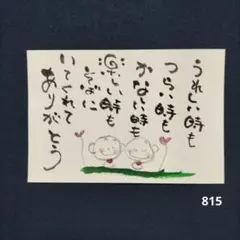 うれしい時も
つらい時も
かなしい時も
楽しい時も
そばに
いてくれて
ありがとう
815